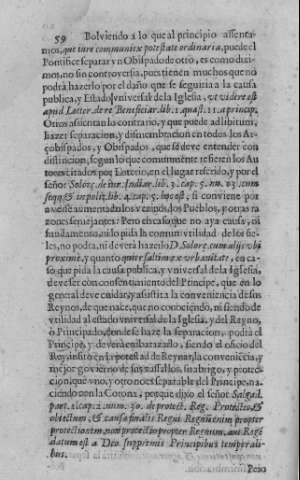 59 Bolviendo a lo que al principio assenta-
mos, que iure communi ex potestate ordinaria, puede el
Pontifice separar vn Obispado de otro, es como dezi-
mos, no sin controversia, pues tienen muchos que no
podrà hazerlo por el daño que se seguiria a la causa
publica, y Estado vniversal de la Iglesia, vt videre est
apud Lotter. de re Beneficiar. lib. 1. quæst. 11. a princip.
Otros assientan lo contrario, y que puede ad libitum,
hazer separacion, y dismembracion en todos los Ar-
çobispados, y Obispados, que se deve entender con
distincion, segun lo que comunmente refieren los Au-
tores citados por Loterio, en el lugar referido, y por el
señor Solorç. de iur. Indiar. lib. 3. cap. 5. num. 03. cum
seqq. & in polit. lib. 4. cap. 5. 
 si conviene por
averse aumentado los vezinos, los Pueblos, y otras ra-
zones semejantes: Pero en caso que no aya causa, ni
fundamento, ni lo pida la comun vtilidad de los fie-
les, no podrà, ni deverà hazerlo D. Solorç. cum alijs vbi
proxime, y quanto quier saltim ex vrbanitate, en ca-
so que pida la causa publica, y vniversal de la Iglesia,
deve ser con consentimiento del Principe, que en lo
general deve cuidar, y assistir a la conveniencia de sus
Reynos, de que nace, que no conociendo, ni siendo de
vtilidad al estado vniversal de la Iglesia, y del Reyno,
ò Principado, donde se haze la separacion, podrà el
Principe, y deverà embarazarlo, siendo el oficio del
Rey insito en la potestad de Reynar, la conveniencia, y
mejor govierno de sus vassallos, su abrigo, y protec-
cion, que vno, y otro no es separable del Principe, na-
ciendo con la Corona, porque dixo el señor Salgad.
part. 1. cap. 2. num. 30. de protect. Reg. Protectio, &
obiectum, & causa finalis Regni Regnum enim propter
protectionem, non protectio propter Regnum, aut Regi
datum est a Deo supremis Principibus temporali-
bus.
Pero